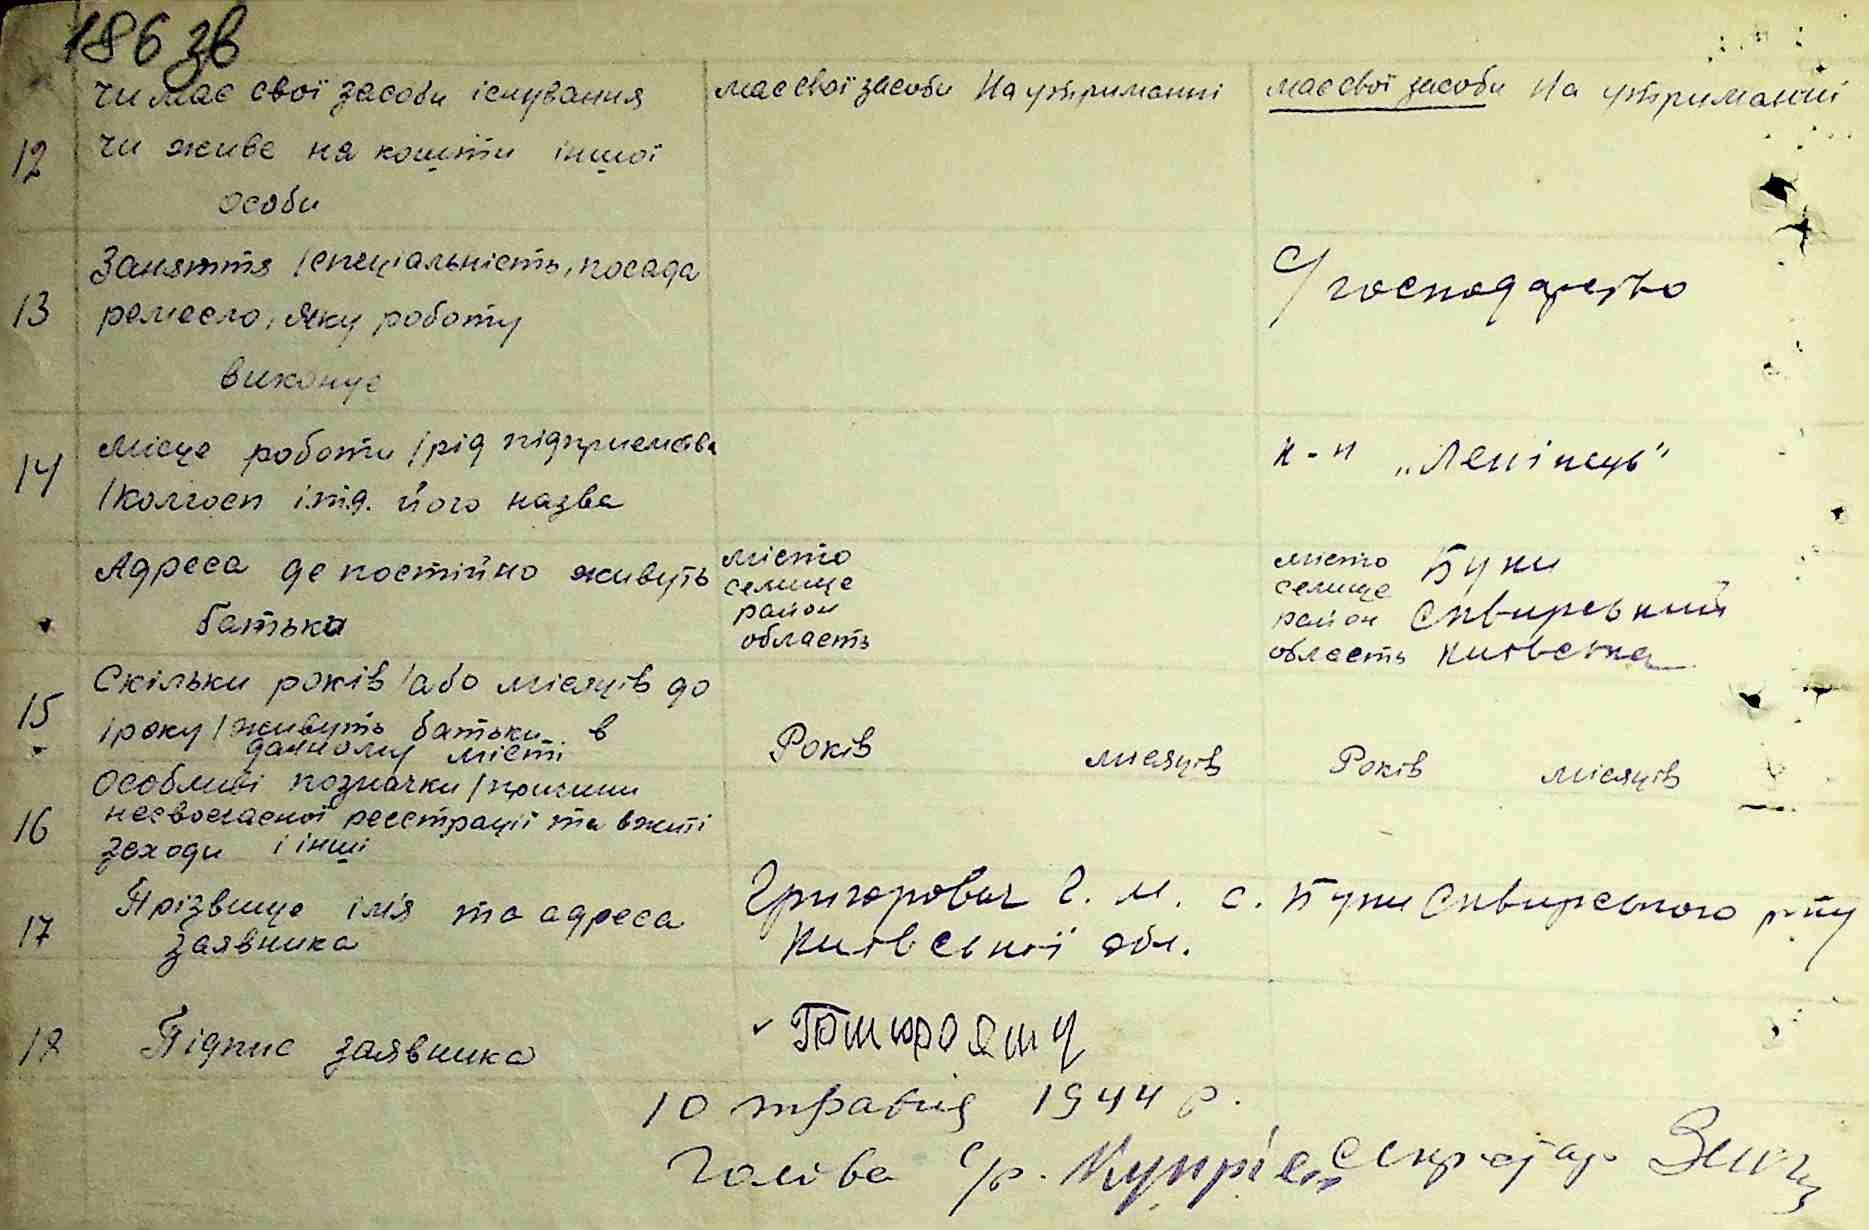 186 зв
12 Чи має свої засоби існування має свої засоби На утриманні має свої засоби На утриманні
чи живе на кошти іншої
особи
13 Заняття /спеціальність, посада С/господарство
ремесло, яку роботу
виконує
14 Місце роботи /рід підприємства к-п "Ленінець"
/колгосп і т.д. його назва
Адреса де постійно живуть місто місто Буки
батьки селище селище
район район Сквирський
область область Київська
15 Скільки років /або місяців до
/року/ живуть батьки в Років місяців Років місяців
данному місті
16 Особливі позначки /причини
несвоєчасної реєстрації та вжиті
заходи і інші
17 Прізвище ім'я та адреса Григорович Г. М. с. Буки Сквирського р-ну
заявника Київської обл.
18 Підпис заявника
10 травня 1944 р.
Голова с/р. секретар